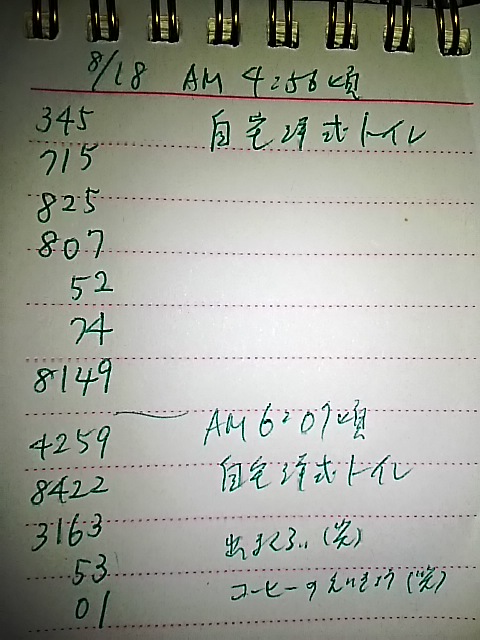 8/18 AM 4:56頃
345 自宅洋式トイレ
715
825
807
52
74
8149
AM 6:07頃
4259
8422 自宅洋式トイレ
3163
出まくる。(笑)
53
コーヒーのえいきょう(笑)
01